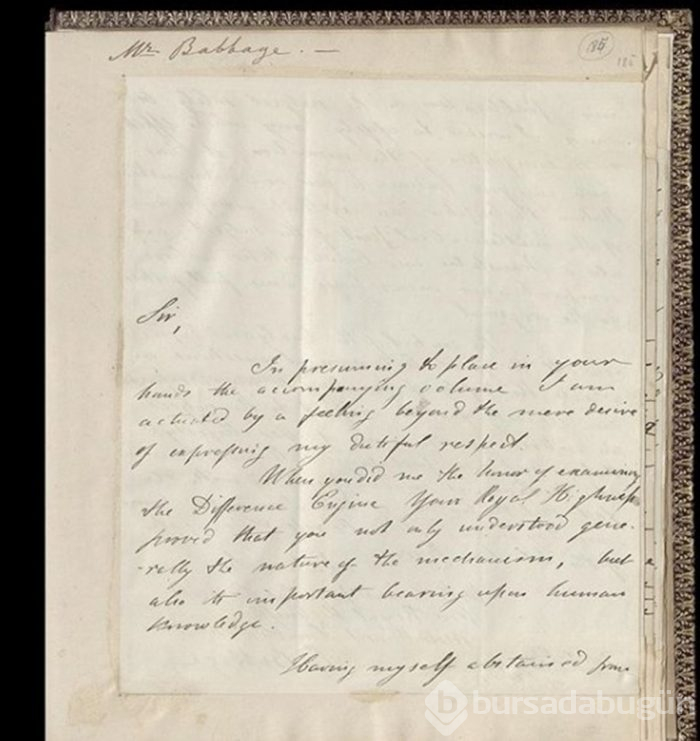 Mr Babbage. —
185
185
Sir,
In presuming to place in your
hands the accompanying volume I am
actuated by a feeling beyond the mere desire
of expressing my dutiful respect.
When you did me the honor of examining
the Difference Engine Your Royal Highness
proved that you not only understood gene-
-rally the nature of the mechanism, but
also its important bearing upon human
knowledge.
Having myself abstained from
b bursadabugün